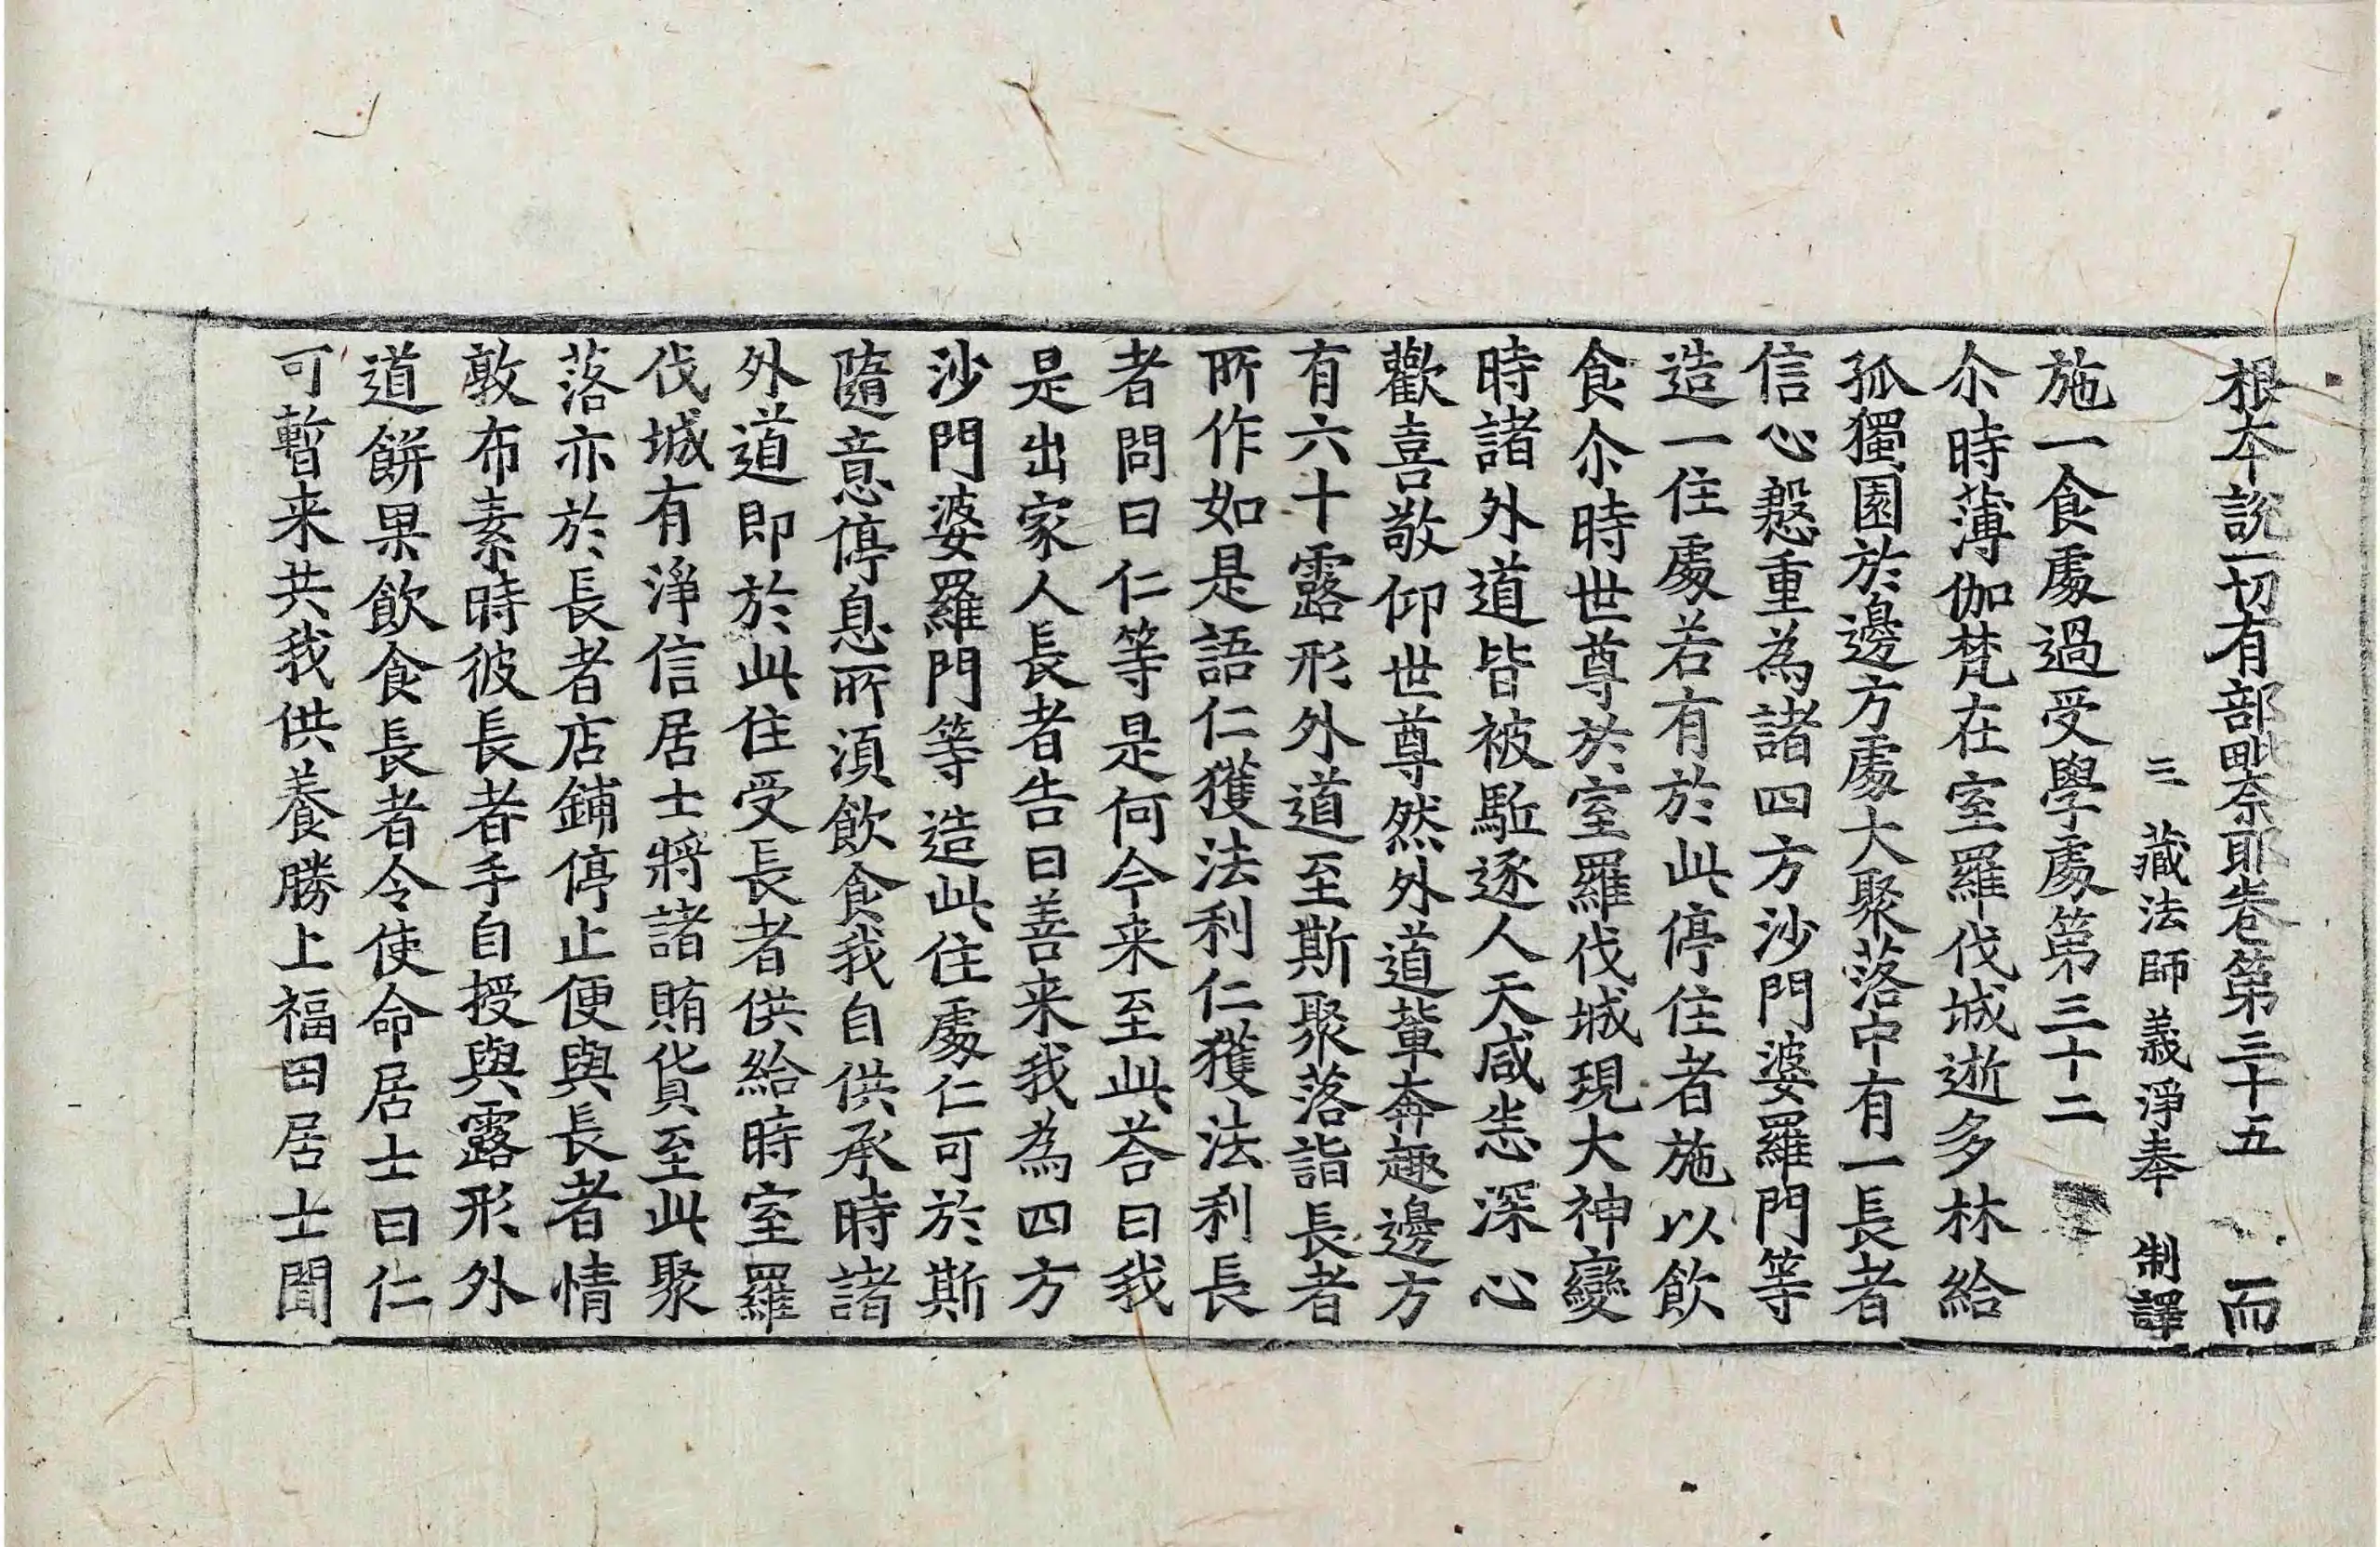 根本說一切有部毗奈耶卷第三十五 而
三藏法師義淨奉 制譯
施一食處過受學處第三十二
尒時薄伽梵在室羅伐城逝多林給
孤獨園於邊方處大聚落中有一長者
信心慇重為諸四方沙門婆羅門等
造一住處若有於此停住者施以飲
食尒時世尊於室羅伐城現大神變
時諸外道皆被駈逐人天咸恙深心
歡喜敬仰世尊然外道軰奔趣邊方
有六十露形外道至斯聚落詣長者
所作如是語仁獲法利仁獲法利長
者問曰仁等是何今来至此荅曰我
是出家人長者告曰善来我為四方
沙門婆羅門等造此住處仁可於斯
隨意停息所湏飲食我自供承時諸
外道即於此住受長者供給時室羅
伐城有淨信居士將諸賄貨至此聚
落亦於長者店鋪停止便與長者情
敦布素時彼長者手自授與露形外
道餅果飲食長者令使命居士曰仁
可暫来共我供養勝上福田居士聞